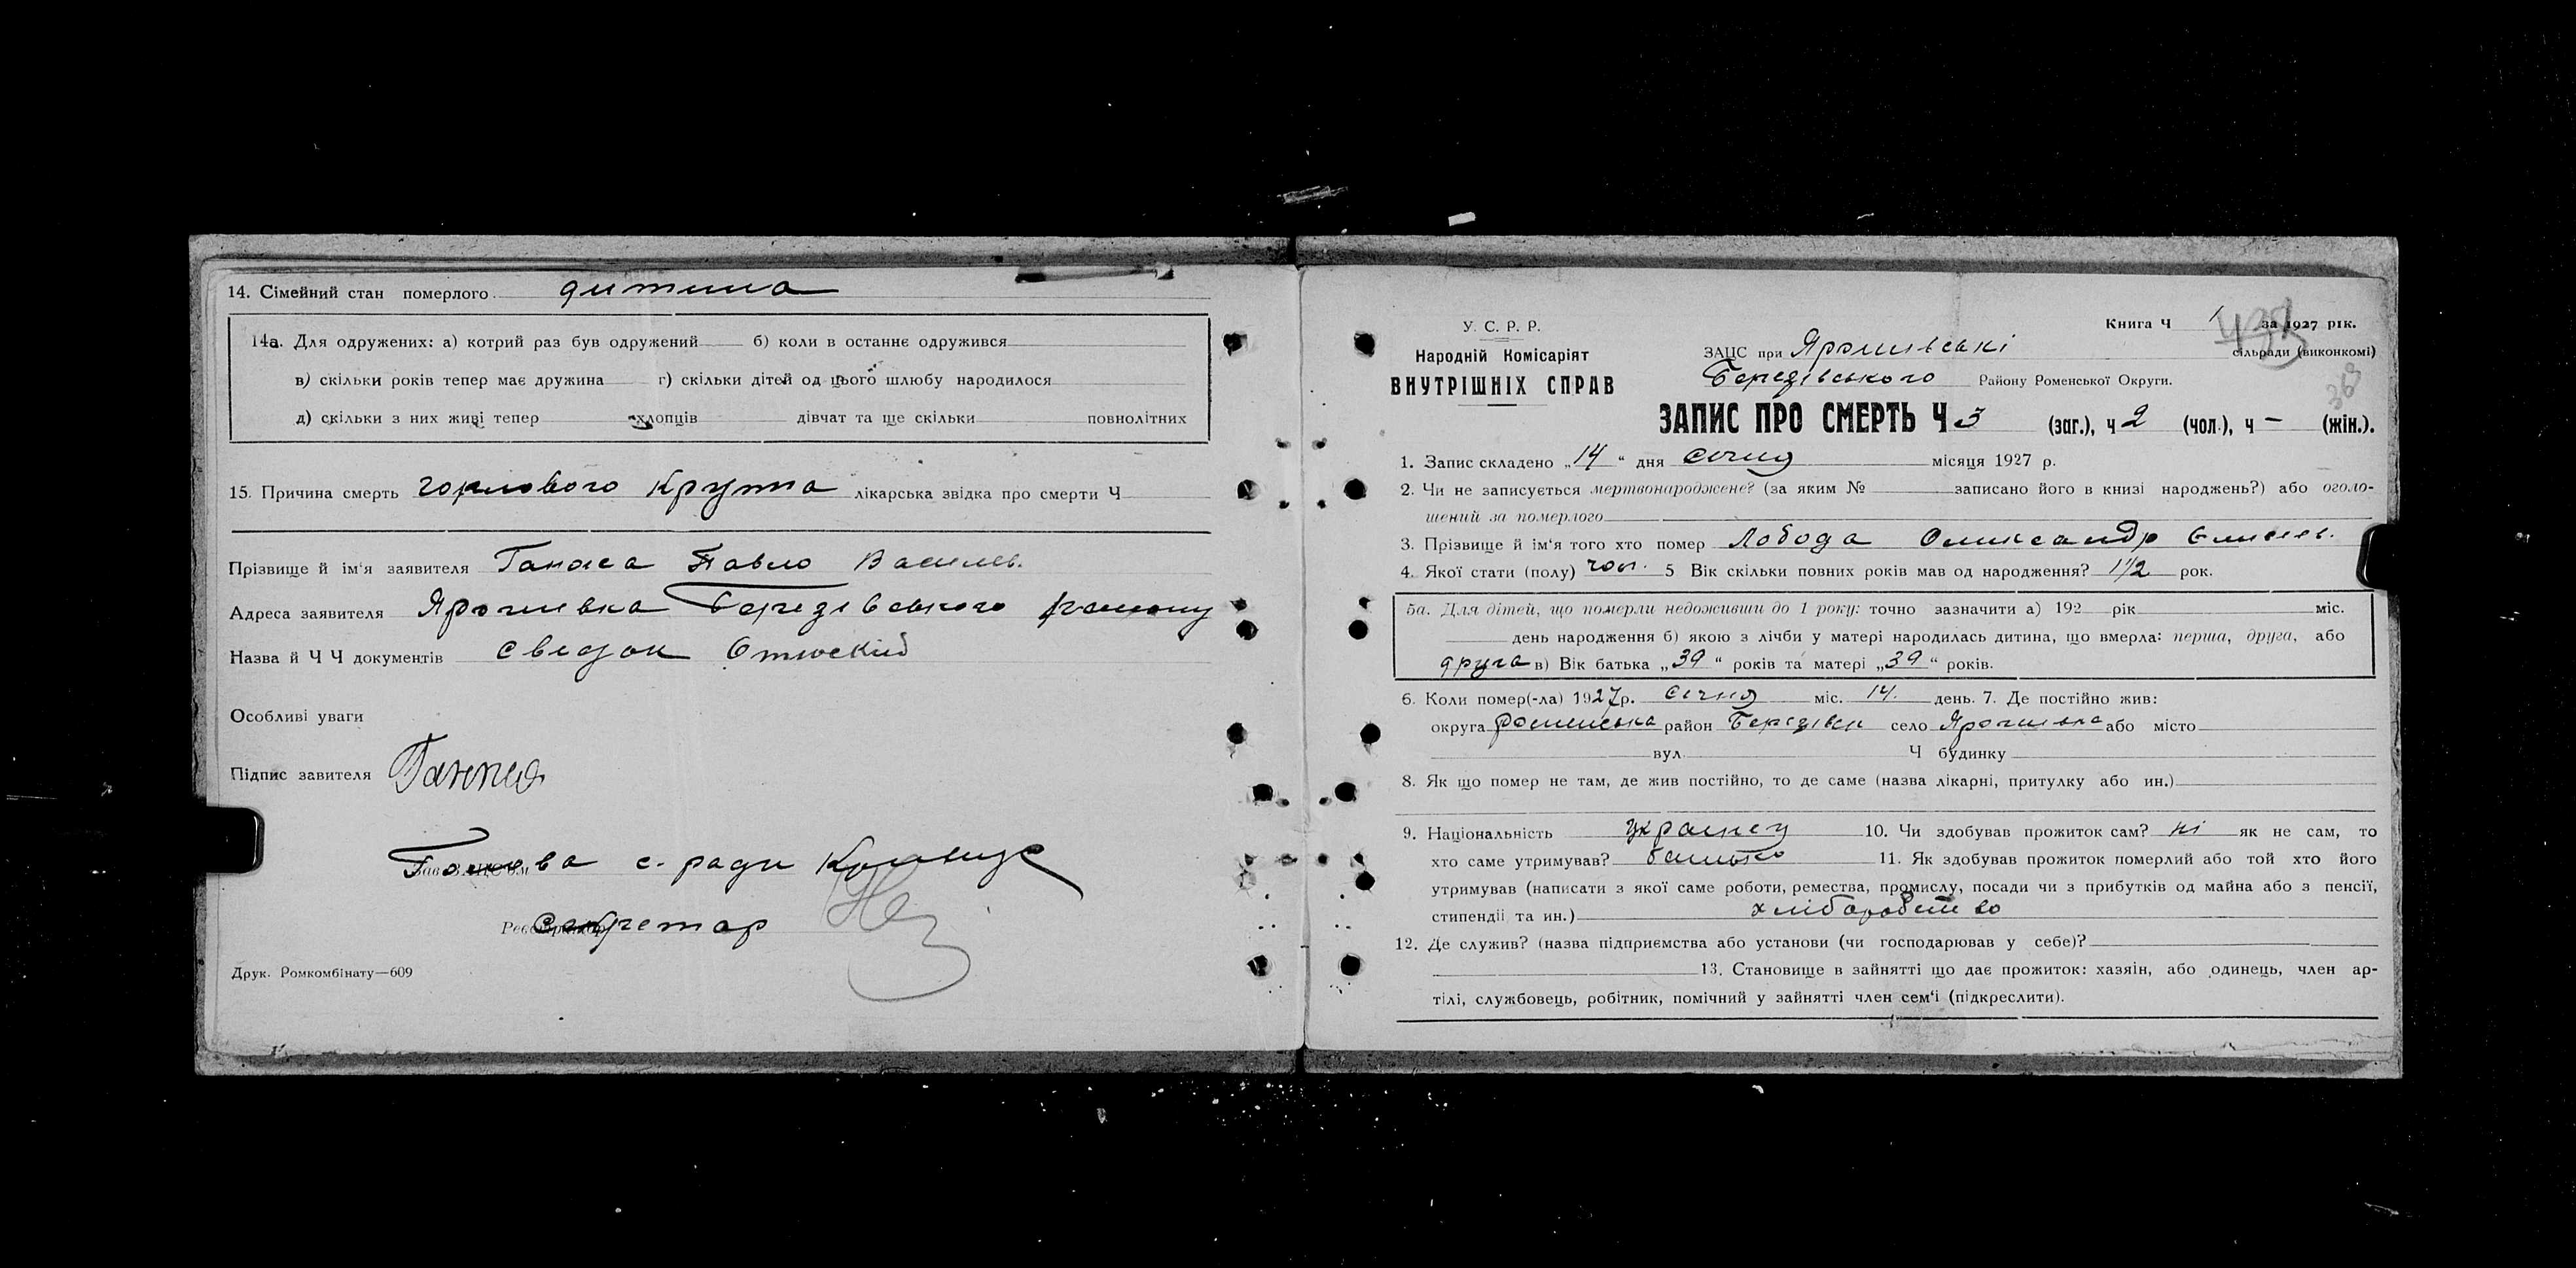 14. Сімейний стан померлого дитина
14а. Для одружених: а) котрий раз був одружений б) коли в останнє одружився
в) скільки років тепер має дружина г) скільки дітей од цього шлюбу народилося
д) скільки з них живі тепер хлопців дівчат та ще скільки повнолітних
15. Причина смерть горлового крупа лікарська звідка про смерти Ч
Прізвище й ім'я заявителя Павло Василев.
Адреса заявителя Ярошивка Березівського району
Назва й Ч Ч документів
Особливі уваги
Підпис завителя
Голова с. ради
Секретар
Друк. Ромкомбінату—609
У. С. Р. Р.
Народній Комісаріят
ВНУТРІШНІХ СПРАВ
Книга Ч 1 за 1927 рік.
ЗАЦС при Ярошивські сільради (виконкомі)
Березівського Району Роменської Округи.
368
ЗАПИС ПРО СМЕРТЬ Ч 3 (заг.), ч 2 (чол.), ч — (жін.).
1. Запис складено „14“ дня січня місяця 1927 р.
2. Чи не записується мертвонароджене? (за яким № записано його в книзі народжень?) або оголо-
шений за померлого
3. Прізвище й ім'я того хто помер Лобода Олександр
4. Якої стати (полу) чол. 5 Вік скільки повних років мав од народження? 1 1/2 рок.
5а. Для дітей, що померли недоживши до 1 року: точно зазначити а) 192 рік міс.
день народження б) якою з лічби у матері народилась дитина, що вмерла: перша, друга, або
друга в) Вік батька „39“ років та матері „39“ років.
6. Коли помер(-ла) 1927р. січня міс. 14. день. 7. Де постійно жив:
округа роменська район Березівск село Ярошивка або місто
вул. Ч будинку
8. Як що помер не там, де жив постійно, то де саме (назва лікарні, притулку або ин.)
9. Національність українец 10. Чи здобував прожиток сам? ні як не сам, то
хто саме утримував? батько 11. Як здобував прожиток померлий або той хто його
утримував (написати з якої саме роботи, ремества, промислу, посади чи з прибутків од майна або з пенсії,
стипендії та ин.) хліборобство
12. Де служив? (назва підприємства або установи (чи господарював у себе)?
13. Становище в зайнятті що дає прожиток: хазяін, або одинець, член ар-
тілі, службовець, робітник, помічний у зайнятті член сем'і (підкреслити).